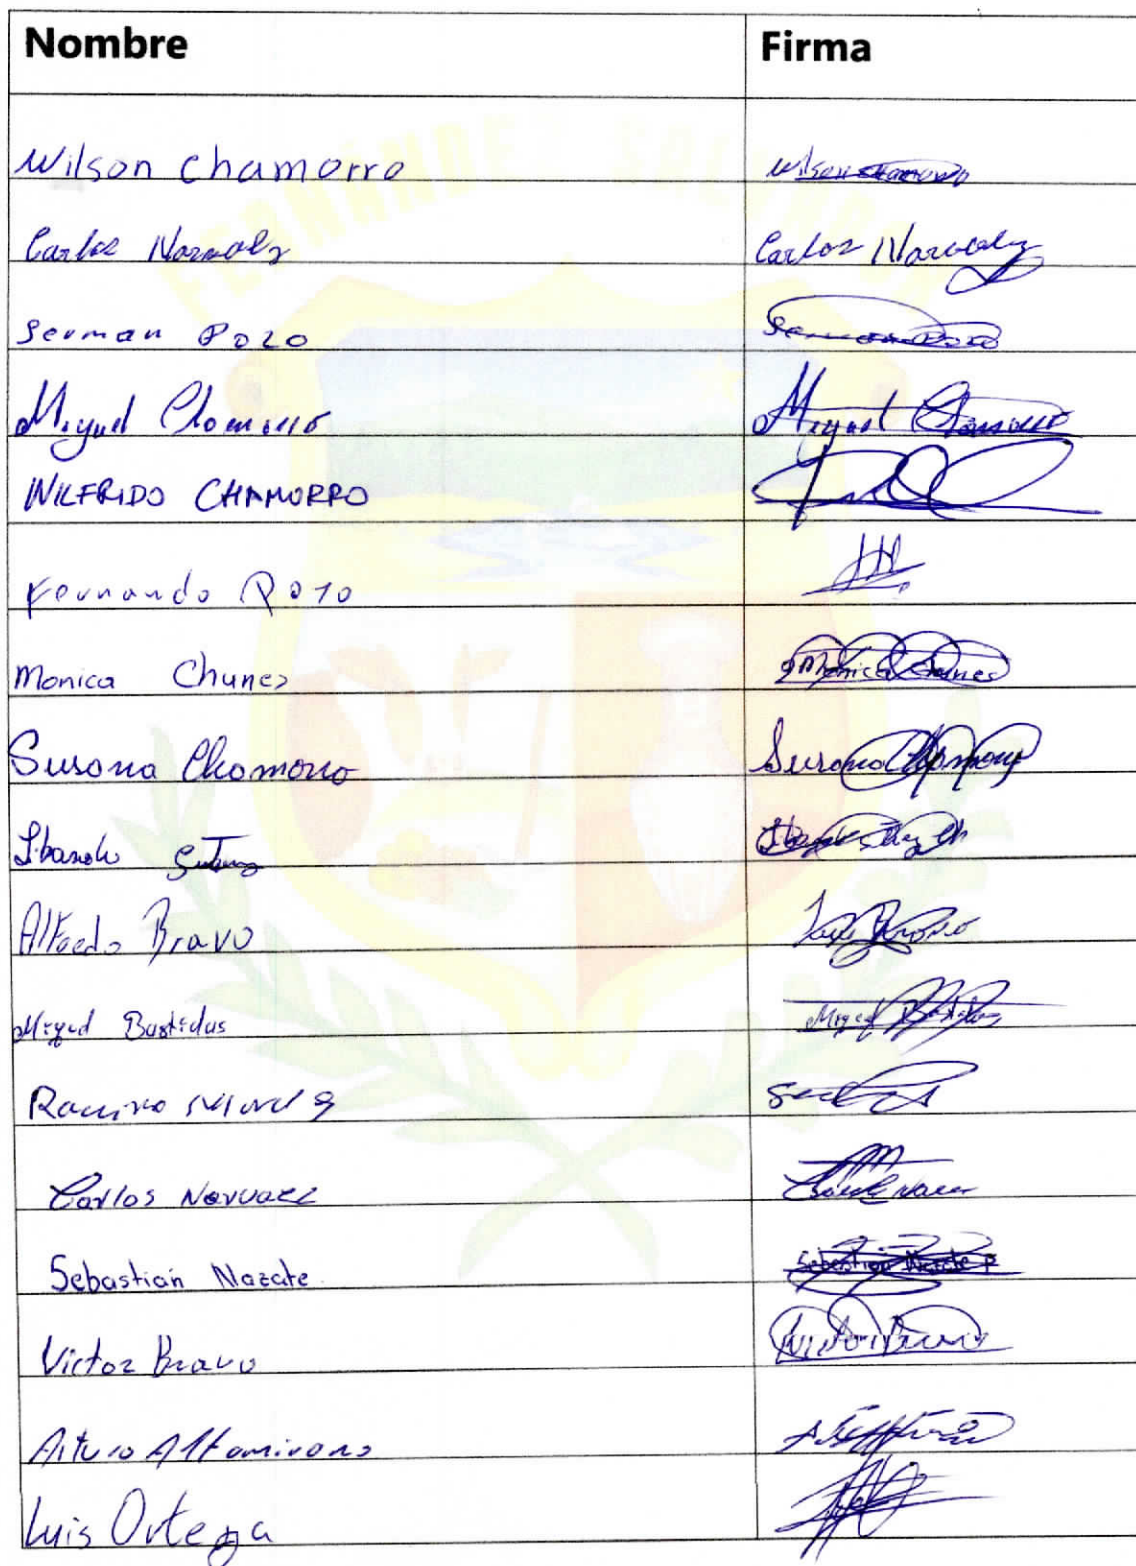 Nombre Firma
FERNÁNDEZ SALVADOR
Wilson Chamorro Wilson Chamorro
Carlos Narvaez Carlos Narvaez
German Pozo German Pozo
Miguel Chamorro Miguel Chamorro
WILFRIDO CHAMORRO
Fernando Pozo
Monica Chunez Monica Chunez
Susana Chamorro Susana Chamorro
Alfredo Bravo
Miguel Bastidas Miguel Bastidas
Ramiro
Carlos Narvaez
Sebastián Nazate Sebastián Nazate P
Victor Bravo Victor Bravo
Arturo Altamirano
Luis Ortega